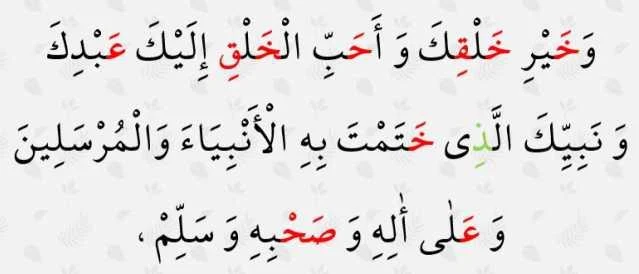 وَخَيْرِ خَلْقِكَ وَ أَحَبِّ الْخَلْقِ إِلَيْكَ عَبْدِكَ
وَ نَبِيِّكَ الَّذِى خَتَمْتَ بِهِ الْأَنْبِيَاءَ وَالْمُرْسَلِينَ
وَ عَلٰى أٰلِهِ وَ صَحْبِهِ وَ سَلِّمْ ،